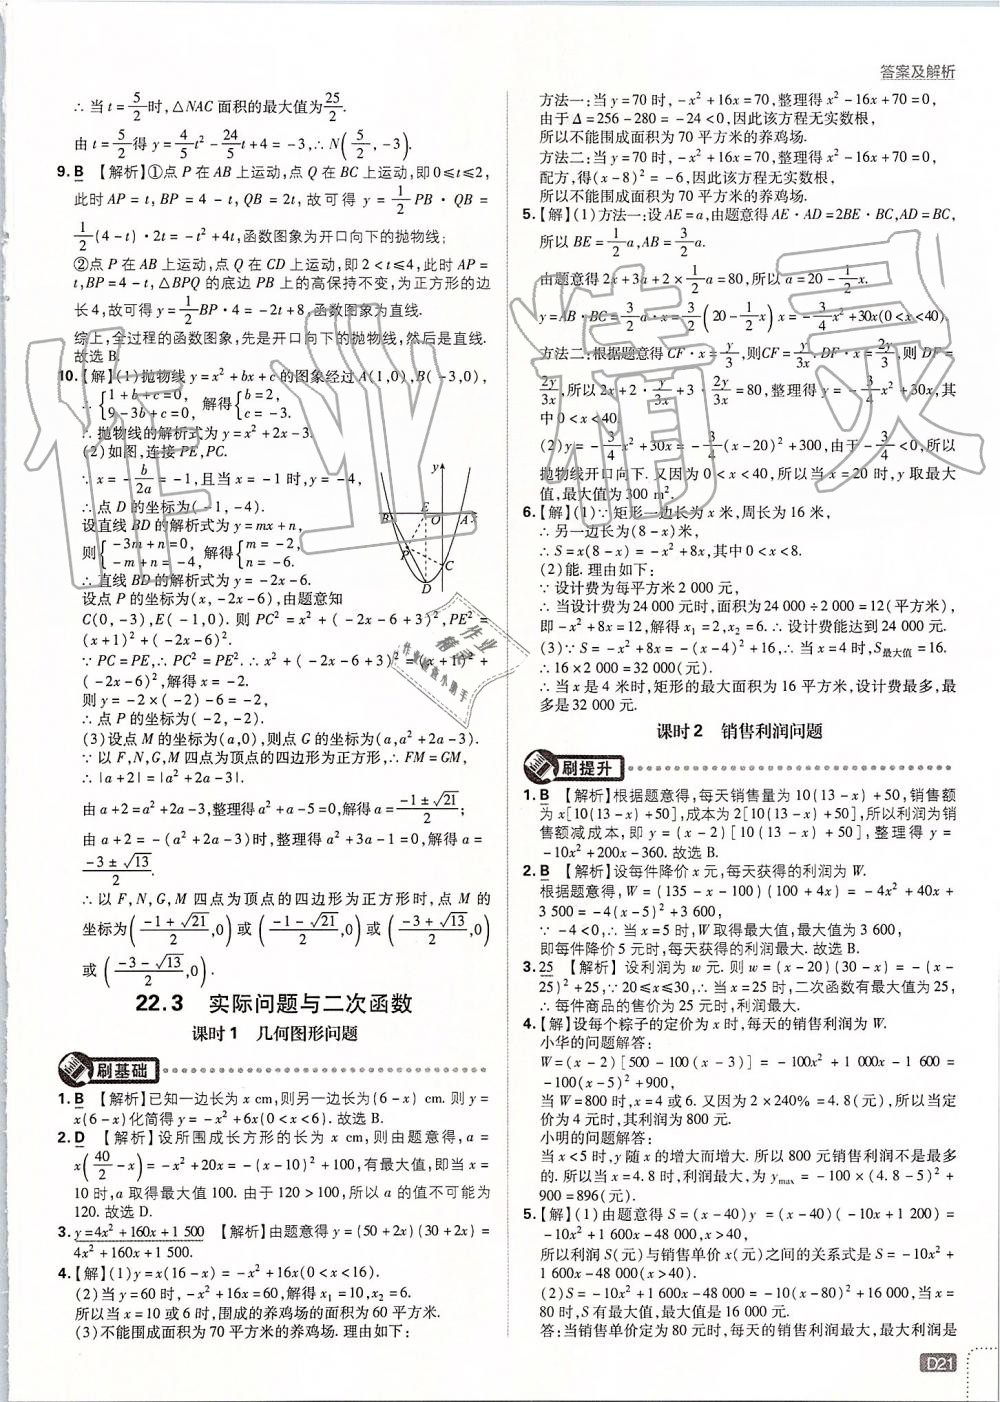 答案及解析
∴ 当 t=5/2时,△NAC 面积的最大值为25/2.
由 t=5/2得 y=4/5t²-24/5t+4=-3,∴N(5/2,-3).
9. B 【解析】①点 P 在 AB 上运动,点 Q 在 BC 上运动,即0≤t≤2,
此时 AP=t,BP=4-t,QB=2t,故可得 y=1/2PB·QB=
1/2(4-t)·2t=-t²+4t,函数图象为开口向下的抛物线;
②点 P 在 AB 上运动,点 Q 在 CD 上运动,即2<t≤4,此时 AP=
t,BP=4-t,△BPQ 的底边 PB 上的高保持不变,为正方形的边
长4,故可得 y=1/2BP·4=-2t+8,函数图象为直线.
综上,全过程的函数图象,先是开口向下的抛物线,然后是直线.
故选 B.
10.【解】(1)抛物线 y=x²+bx+c 的图象经过 A(1,0),B(-3,0),
∴{1+b+c=0, 9-3b+c=0, 解得{b=2, c=-3.
∴ 抛物线的解析式为 y=x²+2x-3.
(2)如图,连接 PE,PC.
∵ x=-b/2a=-1,且当 x=-1时,y=-4,
∴ 点 D 的坐标为(-1,-4).
设直线 BD 的解析式为 y=mx+n,
则{-3m+n=0, -m+n=-4, 解得{m=-2, n=-6.
∴ 直线 BD 的解析式为 y=-2x-6.
设点 P 的坐标为(x,-2x-6),由题意知
C(0,-3),E(-1,0).则 PC²=x²+(-2x-6+3)²,PE²=
(x+1)²+(-2x-6)².
∵ PC=PE,∴PC²=PE².∴x²+(-2x-6+3)²=(x+1)²+
(-2x-6)².解得 x=-2.
则 y=-2×(-2)-6=-2,
∴ 点 P 的坐标为(-2,-2).
(3)设点 M 的坐标为(a,0),则点 G 的坐标为(a,a²+2a-3).
∵ 以 F,N,G,M 四点为顶点的四边形为正方形,∴FM=GM,
∴ |a+2|=|a²+2a-3|.
由 a+2=a²+2a-3,整理得 a²+a-5=0,解得 a=(-1±√21)/2.
由 a+2=-(a²+2a-3)时,整理得 a²+3a-1=0,解得 a=
(-3±√13)/2.
∴ 以 F,N,G,M 四点为顶点的四边形为正方形时,点 M 的
坐标为((-1+√21)/2,0)或((-1-√21)/2,0)或((-3+√13)/2,0)
或((-3-√13)/2,0).
22.3 实际问题与二次函数
课时1 几何图形问题
刷基础
1. B 【解析】已知一边长为 x cm,则另一边长为(6-x) cm. 则 y=
x(6-x)化简得 y=-x²+6x(0<x<6).故选 B.
2. D 【解析】设所围成长方形的长为 x cm,则由题意得,a=
x(40/2-x)=-x²+20x=-(x-10)²+100,有最大值,即当 x=
10时,a 取得最大值100.由于120>100,所以 a 的值不可能为
120.故选 D.
3. y=4x²+160x+1 500 【解析】由题意得 y=(50+2x)(30+2x)=
4x²+160x+1 500.
4.【解】(1)y=x(16-x)=-x²+16x(0<x<16).
(2)当 y=60时,-x²+16x=60,解得 x₁=10,x₂=6.
所以当 x=10或6时,围成的养鸡场的面积为60平方米.
(3)不能围成面积为70平方米的养鸡场.理由如下:
方法一:当 y=70时,-x²+16x=70,整理得 x²-16x+70=0,
由于 Δ=256-280=-24<0,因此该方程无实数根,
所以不能围成面积为70平方米的养鸡场.
方法二:当 y=70时,-x²+16x=70,整理得 x²-16x+70=0,
配方,得(x-8)²=-6,因此该方程无实数根,
所以不能围成面积为70平方米的养鸡场.
5.【解】(1)方法一:设 AE=a,由题意得 AE·AD=2BE·BC,AD=BC,
所以 BE=1/2a,AB=3/2a.
由题意得2x+3a+2×1/2a=80,所以 a=20-1/2x.
y=AB·BC=3/2a·x=3/2(20-1/2x)x=-3/4x²+30x(0<x<40).
方法二:根据题意得 CF·x=y/3,则CF=y/3x,DF·x=2y/3,则 DF=
2y/3x,所以2x+2·y/3x+3·2y/3x=80,整理得 y=-3/4x²+30x,其
中0<x<40.
(2)y=-3/4x²+30x=-3/4(x-20)²+300,由于-3/4<0,所以
抛物线开口向下.又因为0<x<40,所以当 x=20时,y 取最大
值,最大值为300 m².
6.【解】(1)∵ 矩形一边长为 x 米,周长为16米,
∴ 另一边长为(8-x)米,
∴ S=x(8-x)=-x²+8x,其中0<x<8.
(2)能.理由如下:
∵ 设计费为每平方米2 000元,
∴ 当设计费为24 000元时,面积为24 000÷2 000=12(平方米),
即-x²+8x=12,解得 x₁=2,x₂=6.∴ 设计费能达到24 000元.
(3)∵S=-x²+8x=-(x-4)²+16,∴ 当 x=4时,S最大值=16.
∴ 16×2 000=32 000(元).
∴ 当 x 是4米时,矩形的最大面积为16平方米,设计费最多,最
多是32 000元.
课时2 销售利润问题
刷提升
1. B 【解析】根据题意得,每天销售量为10(13-x)+50,销售额
为 x[10(13-x)+50],成本为2[10(13-x)+50],所以利润为销
售额减成本,即 y=(x-2)[10(13-x)+50],整理得 y=
-10x²+200x-360.故选 B.
2. B 【解析】设每件降价 x 元,每天获得的利润为 W.
根据题意得,W=(135-x-100)(100+4x)=-4x²+40x+
3 500=-4(x-5)²+3 600,
∵ -4<0,∴当 x=5时,W 取得最大值,最大值为3 600,
即每件降价5元时,每天获得的利润最大.故选 B.
3. 25 【解析】设利润为 w 元.则 w=(x-20)(30-x)=-(x-
25)²+25,∵20≤x≤30,∴ 当 x=25时,二次函数有最大值25,
∴ 每件商品的售价为25元时,利润最大.
4.【解】设每个粽子的定价为 x 时,每天的销售利润为 W.
小华的问题解答:
W=(x-2)[500-100(x-3)]=-100x²+1 000x-1 600=
-100(x-5)²+900,
当 W=800时,x=4或6.又因为2×240%=4.8(元),所以当定
价为4元时,其利润为800元.
小明的问题解答:
当 x<5时,y 随 x 的增大而增大.所以800元销售利润不是最多
的.所以当 x=4.8时,利润最大,为 yₘₐₓ=-100×(4.8-5)²+
900=896(元).
5.【解】(1)由题意得 S=(x-40)y=(x-40)(-10x+1 200)=
-10x²+1 600x-48 000,x>40,
所以利润 S(元)与销售单价 x(元)之间的关系式是 S=-10x²+
1 600x-48 000(x>40).
(2)S=-10x²+1 600x-48 000=-10(x-80)²+16 000,当 x=
80时,S 有最大值,最大值为16 000.
答:当销售单价定为80元时,每天的销售利润最大,最大利润是
D21